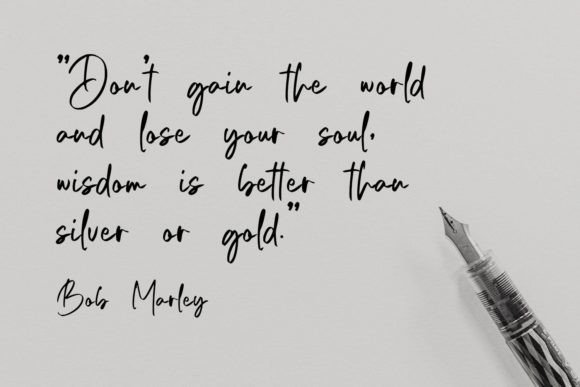 "Don't gain the world
and lose your soul,
wisdom is better than
silver or gold."
Bob Marley